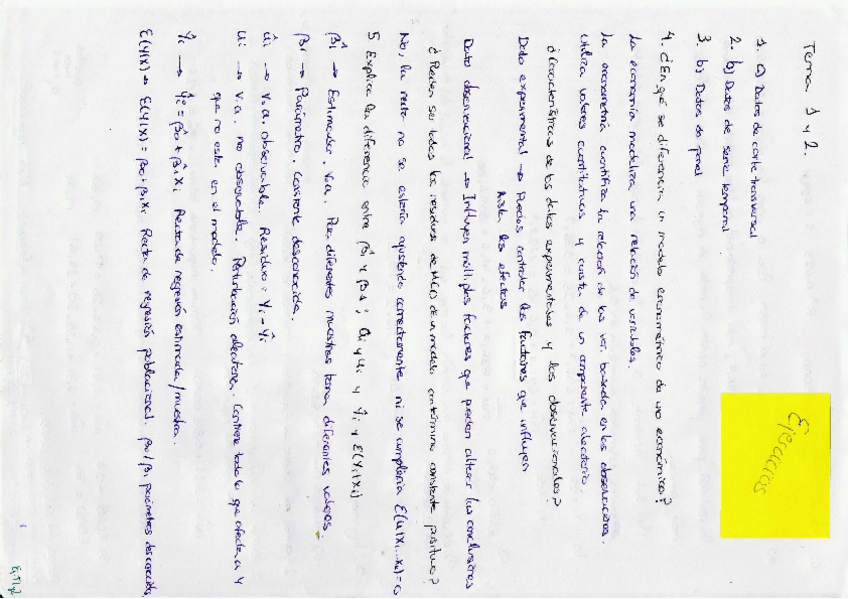 Tema 1 y 2.
1. a) Datos de corte transversal
2. b) Datos de serie temporal
3. b) Datos de panel
4. ¿En qué se diferencia un modelo econométrico de uno económico?
La economía modeliza una relación de variables.
La econometría cuantifica la relación de las var. basada en las observaciones.
Utiliza valores cuantitativos y consta de un componente aleatorio
¿Características de los datos experimentales y los observacionales?
Dato experimental → Puedes controlar los factores que influyen
Aísla los efectos
Dato observacional → Influyen múltiples factores que pueden alterar las conclusiones
¿Pueden ser todos los residuos de MCO de un modelo con término constante positivos?
No, la recta no se estaría ajustando correctamente ni se cumpliría E(u|X1...Xk)=0
5 Explica la diferencia entre β̂1 y β1; ûi y ui y Ŷi y E(Yi|Xi)
β̂1 → Estimador. v.a. Para diferentes muestras toma diferentes valores.
β1 → Parámetro. Constante desconocida.
ûi → v.a. observable. Residuo = Yi - Ŷi
ui → v.a. no observable. Perturbación aleatoria. Contiene todo lo que afecta a Y
que no esta en el modelo.
Ŷi → Ŷi = β̂0 + β̂1Xi Recta de regresión estimada/muestral.
E(Y|X) → E(Y|X) = β0 + β1Xi Recta de regresión poblacional. β0/β1 parámetros desconocidos
Ejercicios